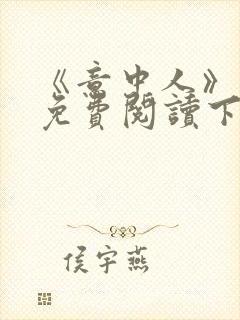 《意中人》
免費閱讀下
侯宇燕